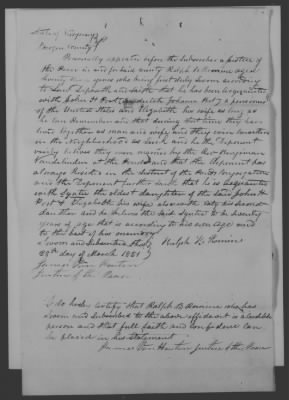 State of New Jersey } SS
Bergen County }
Personally appeared before the Subscriber a Justice of
the Peace in and for said County Ralph B Romine aged
seventy years who being first duly sworn according
to Law Deposeth and saith that he has been acquainted
with John H Post a pensioner
of the United States and Elizabeth his wife as long as
he can remember and that during that time they have
lived together as man and wife and they were
in the Neighbourhood as such and the Deponent
believes they were married by the Rev
Vanderlinden at the and that the Deponent has
always Resided in the of the Congregation
and the Deponent further saith that he is acquainted
with the eldest daughter of the said John H
Post & Elizabeth his wife also with
daughter and he believes the said to be seventy
years of age that is according to his own age and to
the best of his memory
Sworn and Subscribed this } Ralph B Romine
25th day of March 1851 }
Van Houten
Justice of the Peace
I do hereby certify that Ralph B Romine who has
Sworn and Subscribed to the above affidavit is a credible
person and that full faith and confidence can
be placed in his statement
Van Houten Justice of the Peace